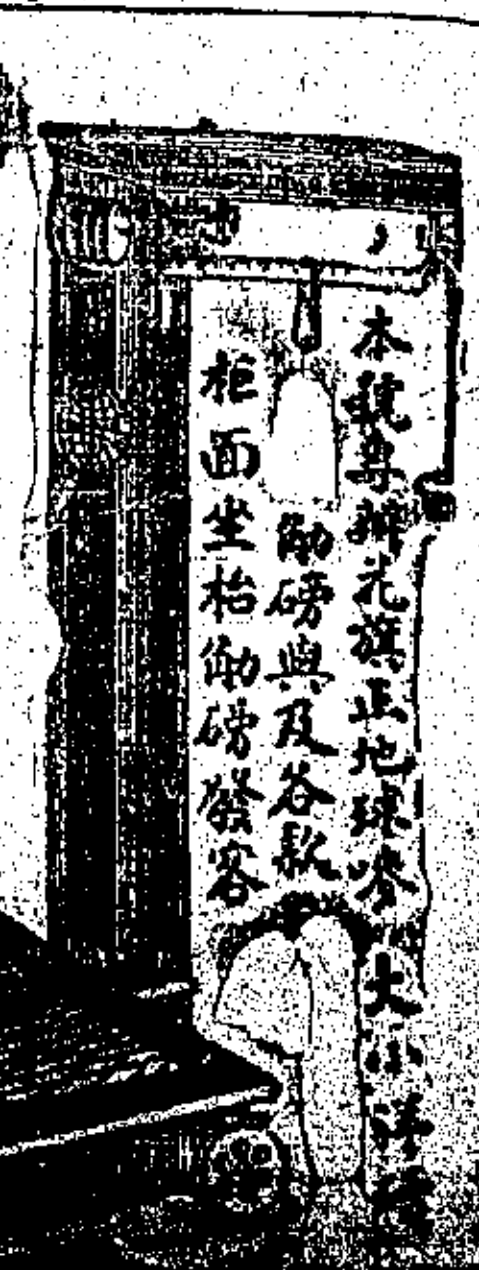 本號專辦花旗正地球嘜大小洋
磅與及各款
柜面坐枱磅發客